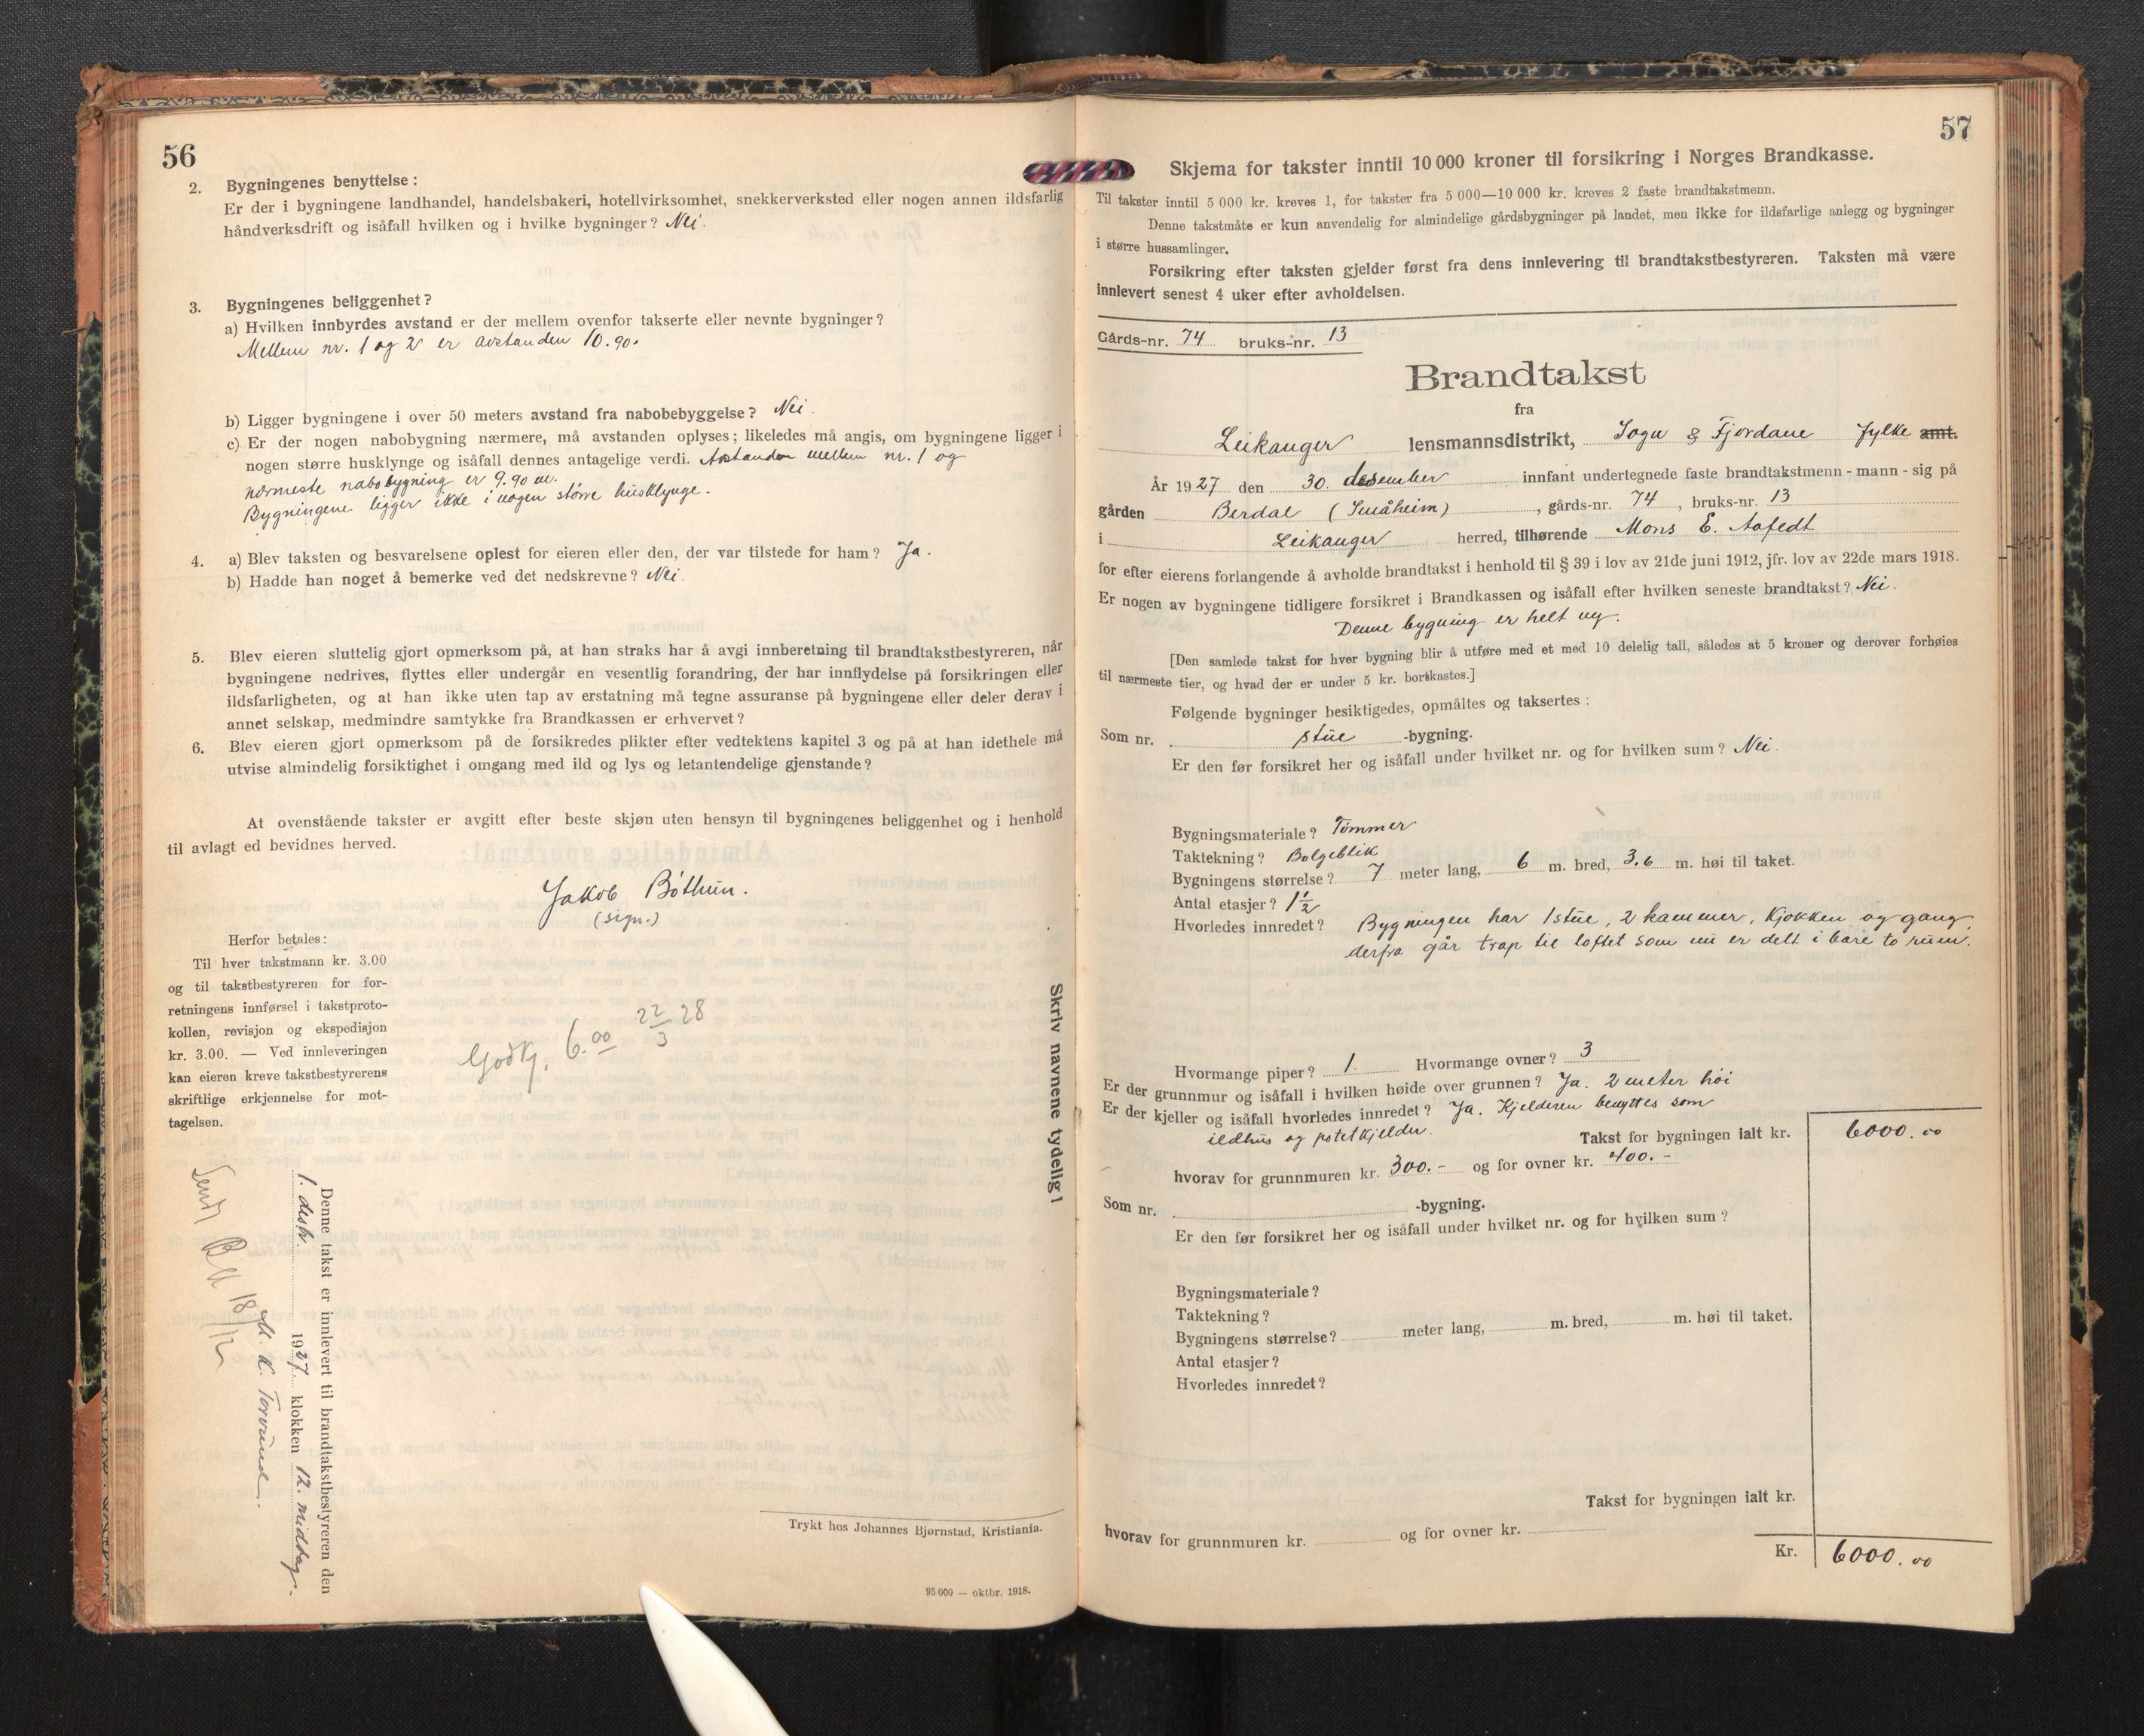 56
2. Bygningenes benyttelse:
Er der i bygningene landhandel, handelsbakeri, hotellvirksomhet, snekkerverksted eller nogen annen ildsfarlig
håndverksdrift og isåfall hvilken og i hvilke bygninger? Nei.
3. Bygningenes beliggenhet?
a) Hvilken innbyrdes avstand er der mellem ovenfor takserte eller nevnte bygninger?
Mellem nr. 1 og 2 er avstanden 10.90.
b) Ligger bygningene i over 50 meters avstand fra nabobebyggelse? Nei.
c) Er der nogen nabobygning nærmere, må avstanden oplyses; likeledes må angis, om bygningene ligger i
nogen større husklynge og isåfall dennes antagelige verdi. Avstanden mellem nr. 1 og
nærmeste nabobygning er 9.90 m.
Bygningene ligger ikke i nogen større husklynge.
4. a) Blev taksten og besvarelsene oplest for eieren eller den, der var tilstede for ham? Ja.
b) Hadde han noget å bemerke ved det nedskrevne? Nei.
5. Blev eieren sluttelig gjort opmerksom på, at han straks har å avgi innberetning til brandtakstbestyreren, når
bygningene nedrives, flyttes eller undergår en vesentlig forandring, der har innflydelse på forsikringen eller
ildsfarligheten, og at han ikke uten tap av erstatning må tegne assuranse på bygningene eller deler derav i
annet selskap, medmindre samtykke fra Brandkassen er erhvervet?
6. Blev eieren gjort opmerksom på de forsikredes plikter efter vedtektens kapitel 3 og på at han idethele må
utvise almindelig forsiktighet i omgang med ild og lys og letantendelige gjenstande?
At ovenstående takster er avgitt efter beste skjøn uten hensyn til bygningenes beliggenhet og i henhold
til avlagt ed bevidnes herved.
Jakob Bøthun.
(sign.)
Herfor betales:
Til hver takstmann kr. 3.00
og til takstbestyreren for for-
retningens innførsel i takstproto-
kollen, revisjon og ekspedisjon
kr. 3.00. — Ved innleveringen
kan eieren kreve takstbestyrerens
skriftlige erkjennelse for mot-
tagelsen.
Godkj. 6.00 22/3 28
Skriv navnene tydelig!
Denne takst er innlevert til brandtakstbestyreren den
1. desbr. 1927 klokken 12. middag.
K. Torvund.
Sendt 18/12
Trykt hos Johannes Bjørnstad, Kristiania.
95 000 — oktbr. 1918.
57
Skjema for takster inntil 10 000 kroner til forsikring i Norges Brandkasse.
Til takster inntil 5 000 kr. kreves 1, for takster fra 5 000—10 000 kr. kreves 2 faste brandtakstmenn.
Denne takstmåte er kun anvendelig for almindelige gårdsbygninger på landet, men ikke for ildsfarlige anlegg og bygninger
i større hussamlinger.
Forsikring efter taksten gjelder først fra dens innlevering til brandtakstbestyreren. Taksten må være
innlevert senest 4 uker efter avholdelsen.
Gårds-nr. 74 bruks-nr. 13
Brandtakst
fra
Leikanger lensmannsdistrikt, Sogn & Fjordane fylke amt.
År 1927 den 30. desember innfant undertegnede faste brandtakstmenn - mann - sig på
gården Berdal (Småheim), gårds-nr. 74, bruks-nr. 13
i Leikanger herred, tilhørende Mons E. Aafedt
for efter eierens forlangende å avholde brandtakst i henhold til § 39 i lov av 21de juni 1912, jfr. lov av 22de mars 1918.
Er nogen av bygningene tidligere forsikret i Brandkassen og isåfall efter hvilken seneste brandtakst? Nei.
Denne bygning er helt ny.
[Den samlede takst for hver bygning blir å utføre med et med 10 delelig tall, således at 5 kroner og derover forhøies
til nærmeste tier, og hvad der er under 5 kr. bortkastes.]
Følgende bygninger besiktigedes, opmåltes og taksertes:
Som nr. stue -bygning.
Er den før forsikret her og isåfall under hvilket nr. og for hvilken sum? Nei.
Bygningsmateriale? Tømmer
Taktekning? Bølgeblik
Bygningens størrelse? 7 meter lang, 6 m. bred, 3.6 m. høi til taket.
Antal etasjer? 1½
Hvorledes innredet? Bygningen har 1 stue, 2 kammer, Kjøkken og gang,
derfra går trap til loftet som nu er delt i bare to rum.
Hvormange piper? 1. Hvormange ovner? 3
Er der grunnmur og isåfall i hvilken høide over grunnen? Ja. 2 meter høi
Er der kjeller og isåfall hvorledes innredet? Ja. Kjelderen benyttes som
ildhus og potetkjelder.
Takst for bygningen ialt kr. 6000.00
hvorav for grunnmuren kr. 300.- og for ovner kr. 400.-
Som nr. -bygning.
Er den før forsikret her og isåfall under hvilket nr. og for hvilken sum?
Bygningsmateriale?
Taktekning?
Bygningens størrelse? meter lang, m. bred, m. høi til taket.
Antal etasjer?
Hvorledes innredet?
Takst for bygningen ialt kr.
hvorav for grunnmuren kr. og for ovner kr.
Kr. 6000.00